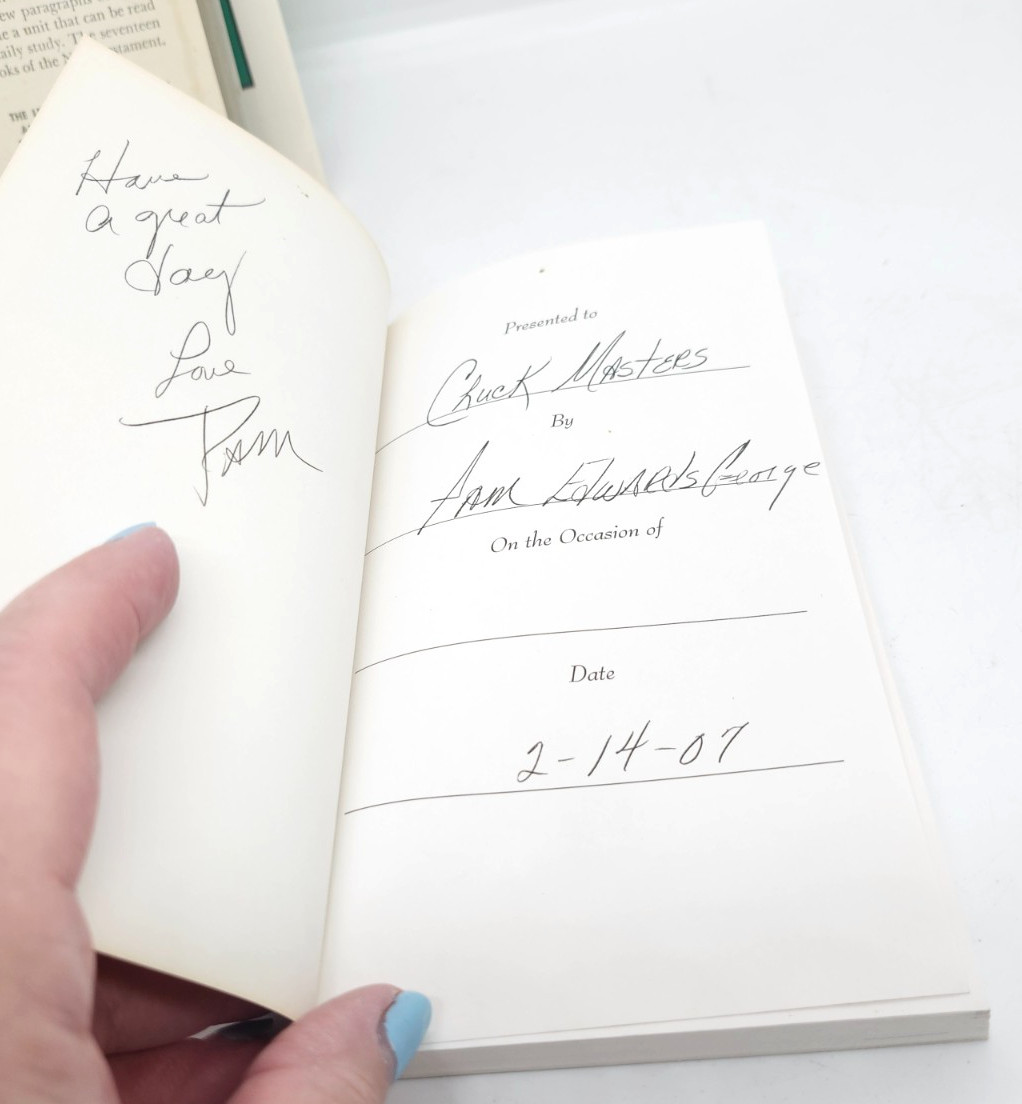 ew paragraphs
e a unit that can be read
aily study. The seventeen
oks of the N tament.
THE
Have
a great
day
Love
Pam
Presented to
Chuck Masters
By
Pam Edwards George
On the Occasion of
Date
2-14-07